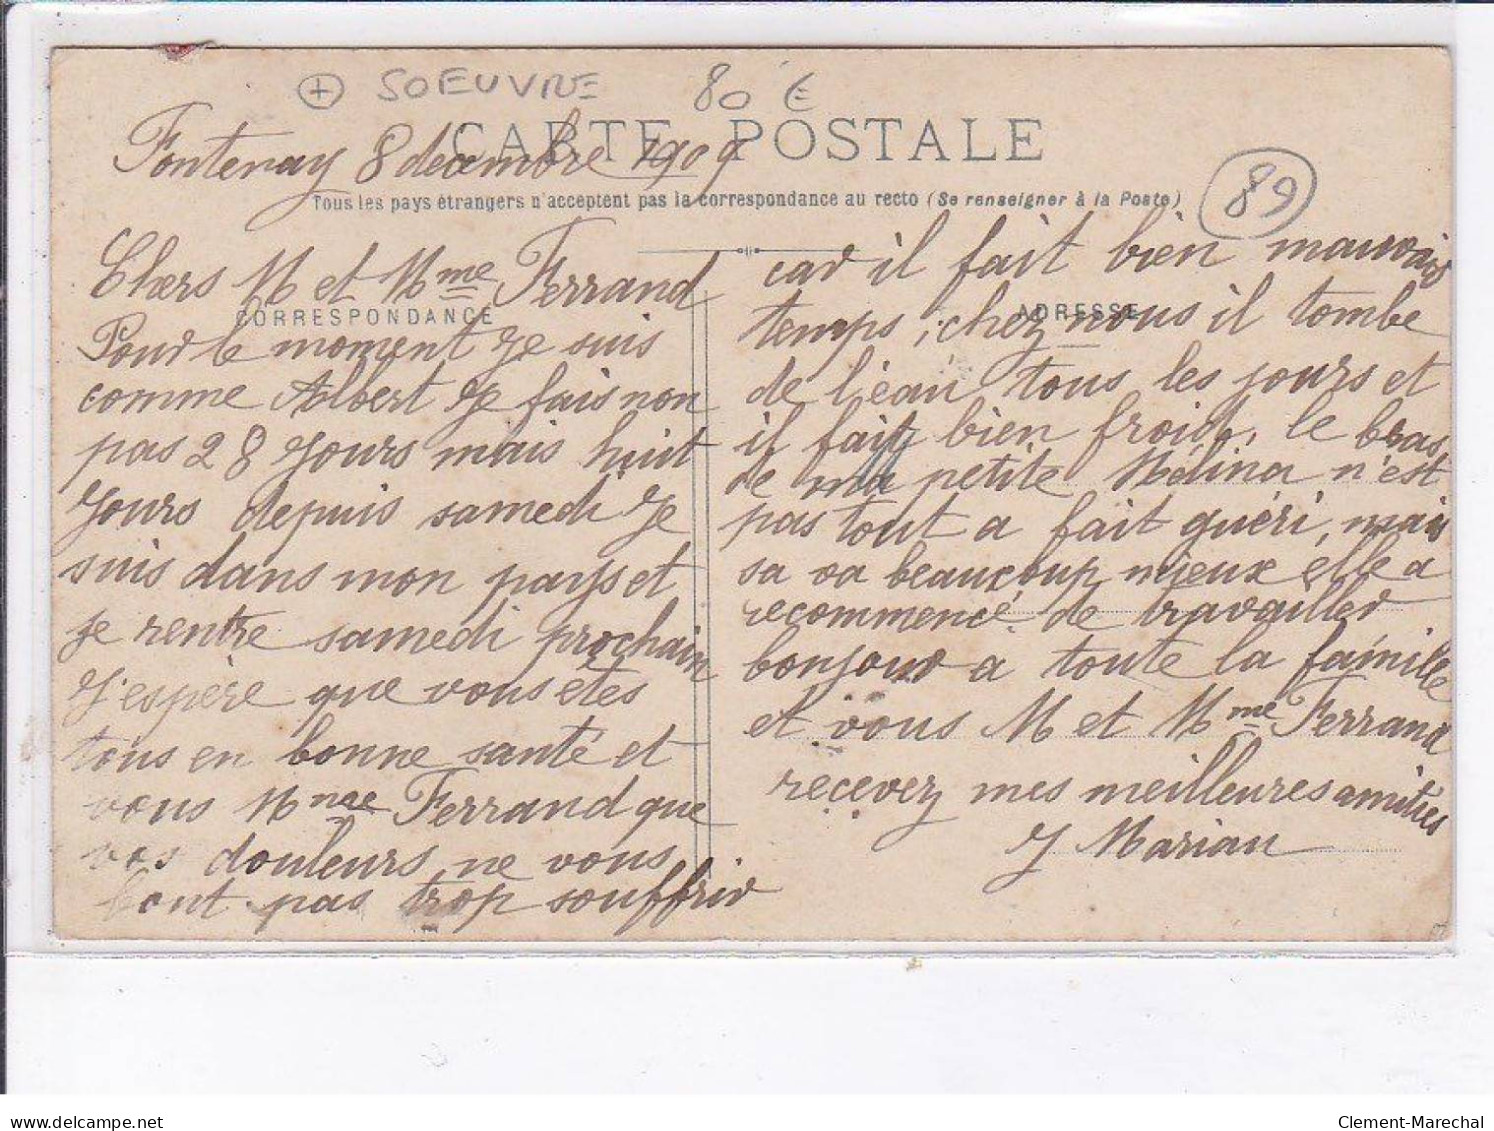 + SOEUVRE 80 €
CARTE POSTALE
Fontenay 8 decembre 1909
Tous les pays étrangers n'acceptent pas la correspondance au recto (Se renseigner à la Poste)
89
CORRESPONDANCE
ADRESSE
Chers M et Mme Ferrand
Pour le moment je suis
comme Albert je fais non
pas 28 jours mais huit
jours depuis samedi je
suis dans mon pays et
je rentre samedi prochain
J'espère que vous etes
tous en bonne santé et
vous Mme Ferrand que
vos douleurs ne vous
font pas trop souffrir
car il fait bien mauvais
temps, chez nous il tombe
de l'eau tous les jours et
il fait bien froid, le bras
de ma petite Mélina n'est
pas tout a fait guéri, mais
sa va beaucoup mieux elle a
recommencé de travailler
bonjour a toute la famille
et vous M et Mme Ferrand
recevez mes meilleures amitiés
J Marian
delcampe.net
Clement-Marechal